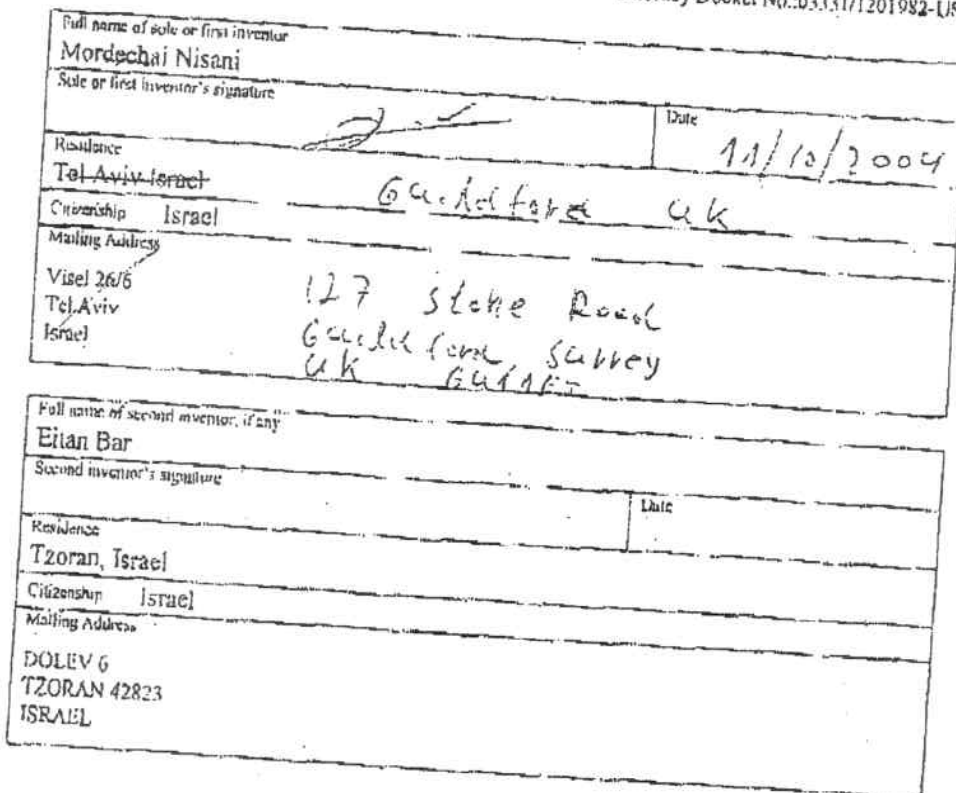 Docket No.:03331/1201982-US
Full name of sole or first inventor
Mordechai Nisani
Sole or first inventor's signature
Date
11/10/2004
Residence
Tel Aviv Israel
Guildford UK
Citizenship Israel
Mailing Address
Visel 26/6
Tel Aviv
Israel
127 Stoke Road
Guildford Surrey
UK
Full name of second inventor, if any
Eitan Bar
Second inventor's signature
Date
Residence
Tzoran, Israel
Citizenship Israel
Mailing Address
DOLEV 6
TZORAN 42823
ISRAEL